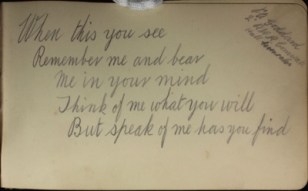 When this you see
Remember me and bear
Me in your mind
Think of me what you will
But speak of me has you find